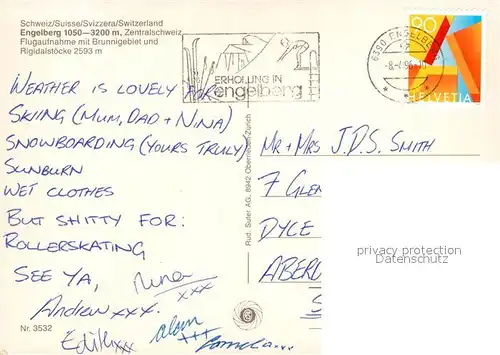 Schweiz/Suisse/Svizzera/Switzerland
Engelberg 1050—3200 m, Zentralschweiz
Flugaufnahme mit Brunnigebiet und
Rigidalstöcke 2593 m
ERHOLUNG IN
engelberg
6390 ENGELBERG
90
HELVETIA
WEATHER IS LOVELY FOR
SKIING (MUM, DAD + NINA)
SNOWBOARDING (YOURS TRULY)
SUNBURN
WET CLOTHES
BUT SHITTY FOR:
ROLLERSKATING
SEE YA,
Nina
xxx
Andrew xxx.
Edith xx
Alan
+++
Pamela xxx
Nr. 3532
Rud. Suter AG, 8942 Oberrieden-Zürich
MR + MRS J.D.S. SMITH
7 GLEN
DYCE
ABER
S
privacy protection
Datenschutz